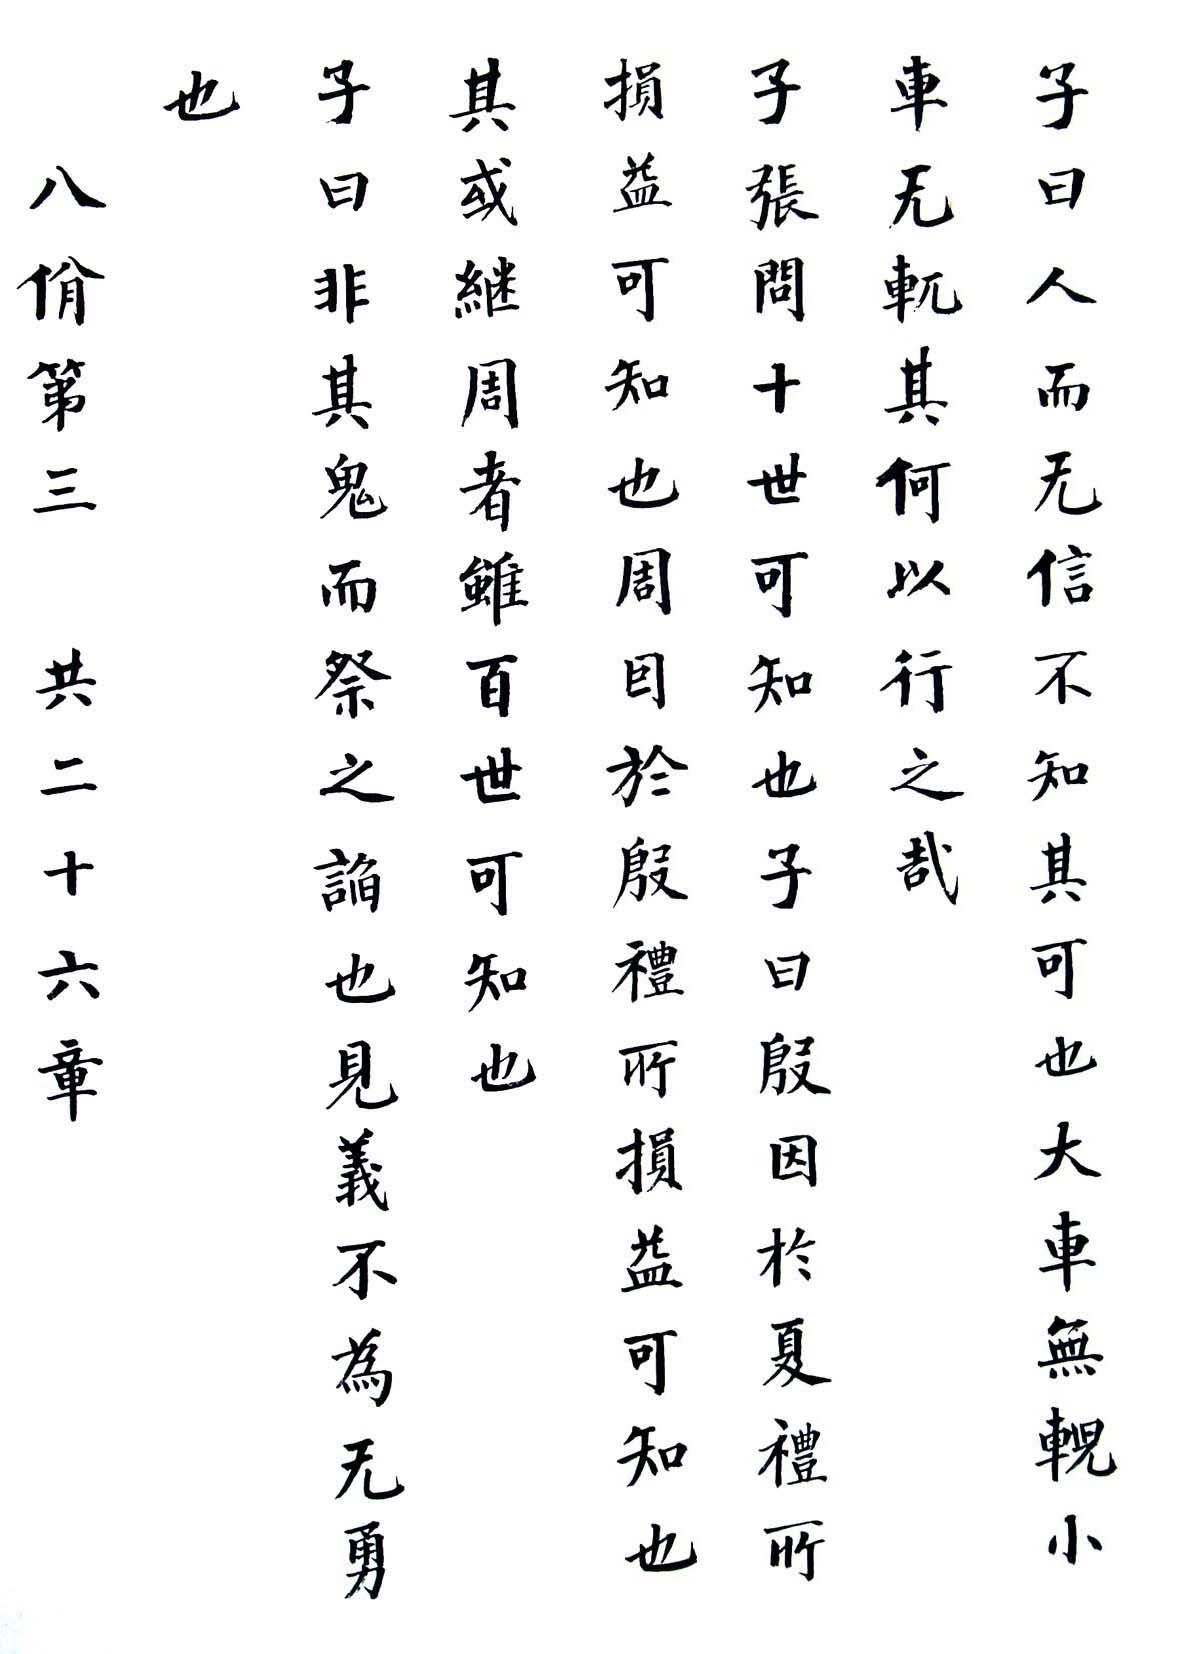 子曰人而无信不知其可也大車無輗小
車无軏其何以行之哉
子張問十世可知也子曰殷因於夏禮所
損益可知也周因於殷禮所損益可知也
其或継周者雖百世可知也
子曰非其鬼而祭之諂也見義不為无勇
也
八佾第三 共二十六章